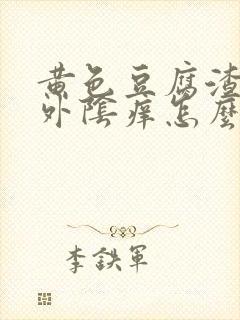 黄色豆腐渣
外陰痒怎麽
李鉄軍